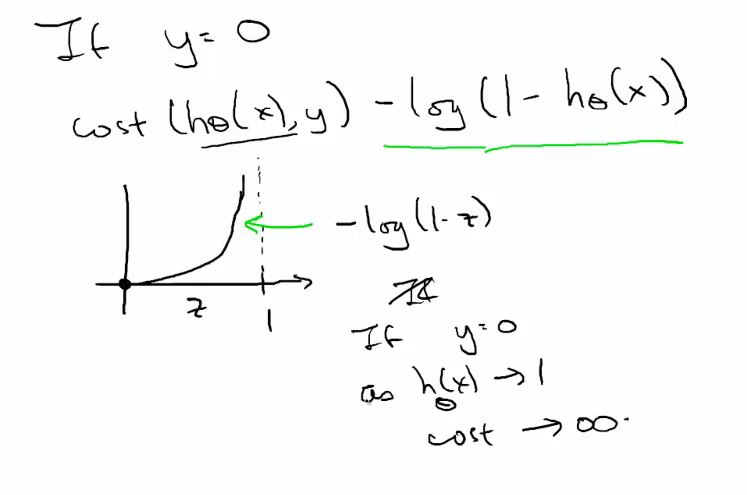 If y=0
cost (hθ(x), y) -log(1 - hθ(x))
-log(1-z)
z
1
If y=0
as hθ(x) → 1
cost → ∞.